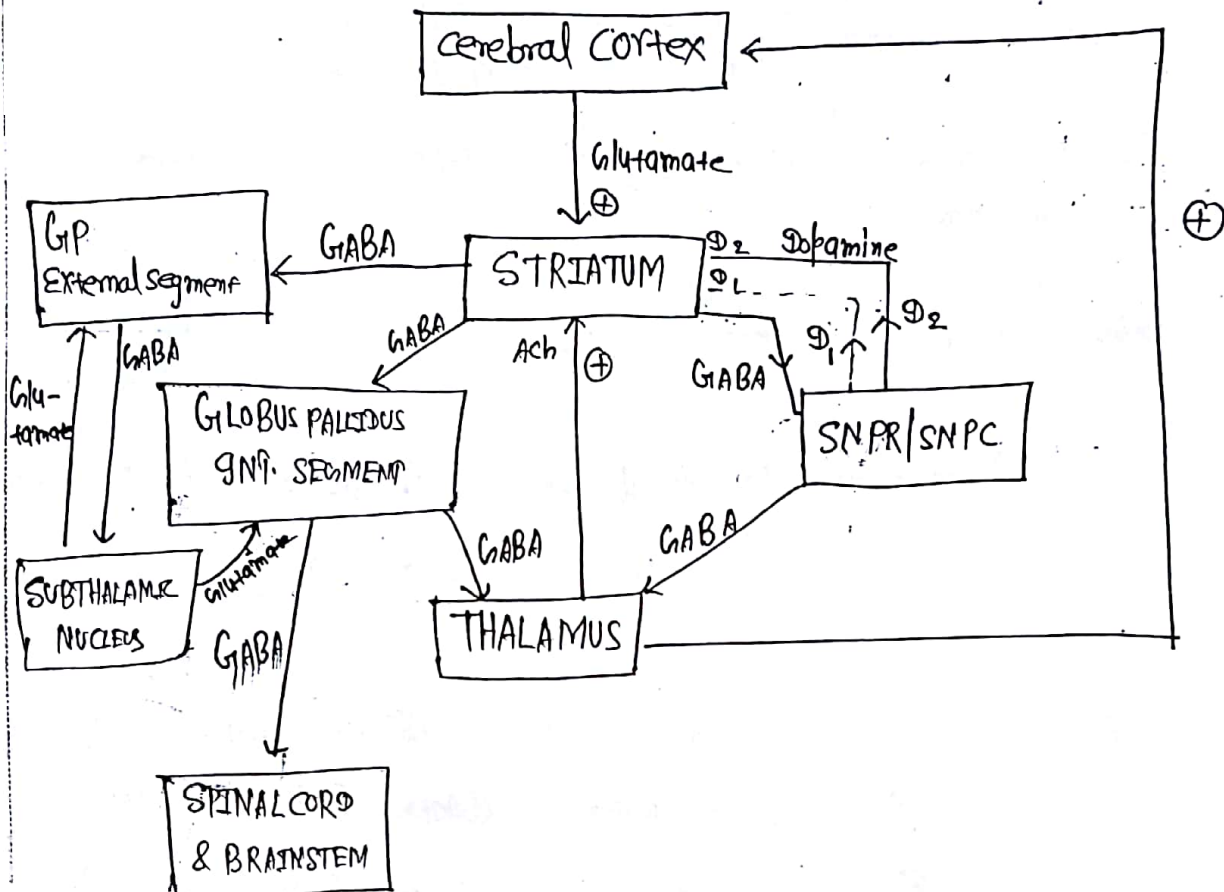 cerebral cortex
Glutamate
⊕
⊕
GP
External segment
GABA
STRIATUM
D2 Dopamine
D1
D1
D2
GABA
GABA
ACh
⊕
GABA
Glu-
tamate
GLOBUS PALLIDUS
INT. SEGMENT
SNPR/SNPC
GABA
GABA
SUBTHALAMIC
NUCLEUS
Glutamate
GABA
THALAMUS
SPINAL CORD
& BRAINSTEM